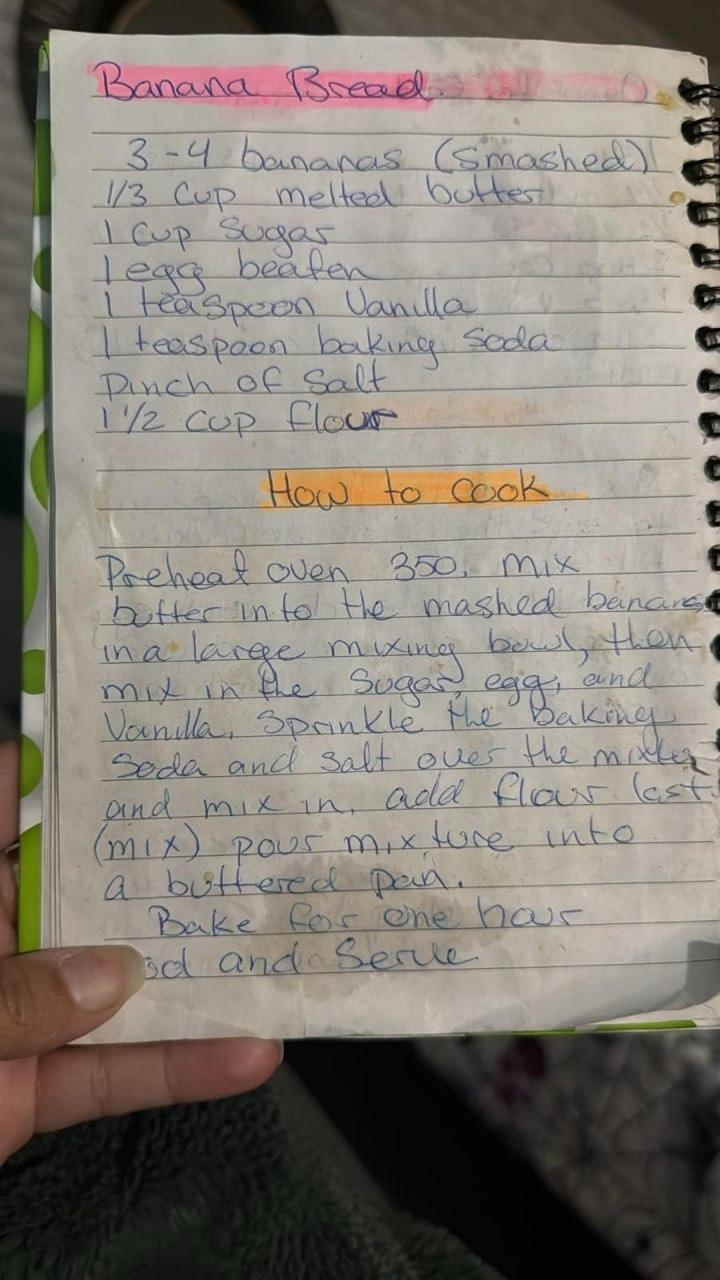 Banana Bread
3-4 bananas (smashed)
1/3 cup melted butter
1 cup sugar
1 egg beaten
1 teaspoon Vanilla
1 teaspoon baking soda
Pinch of Salt
1 1/2 cup flour
How to cook
Preheat oven 350. mix
butter into the mashed bananas
in a large mixing bowl, then
mix in the Sugar, egg, and
Vanilla. Sprinkle the baking
Soda and salt over the
and mix in. add flour last
(mix) pour mixture into
a buttered pan.
Bake for one hour
and Serve